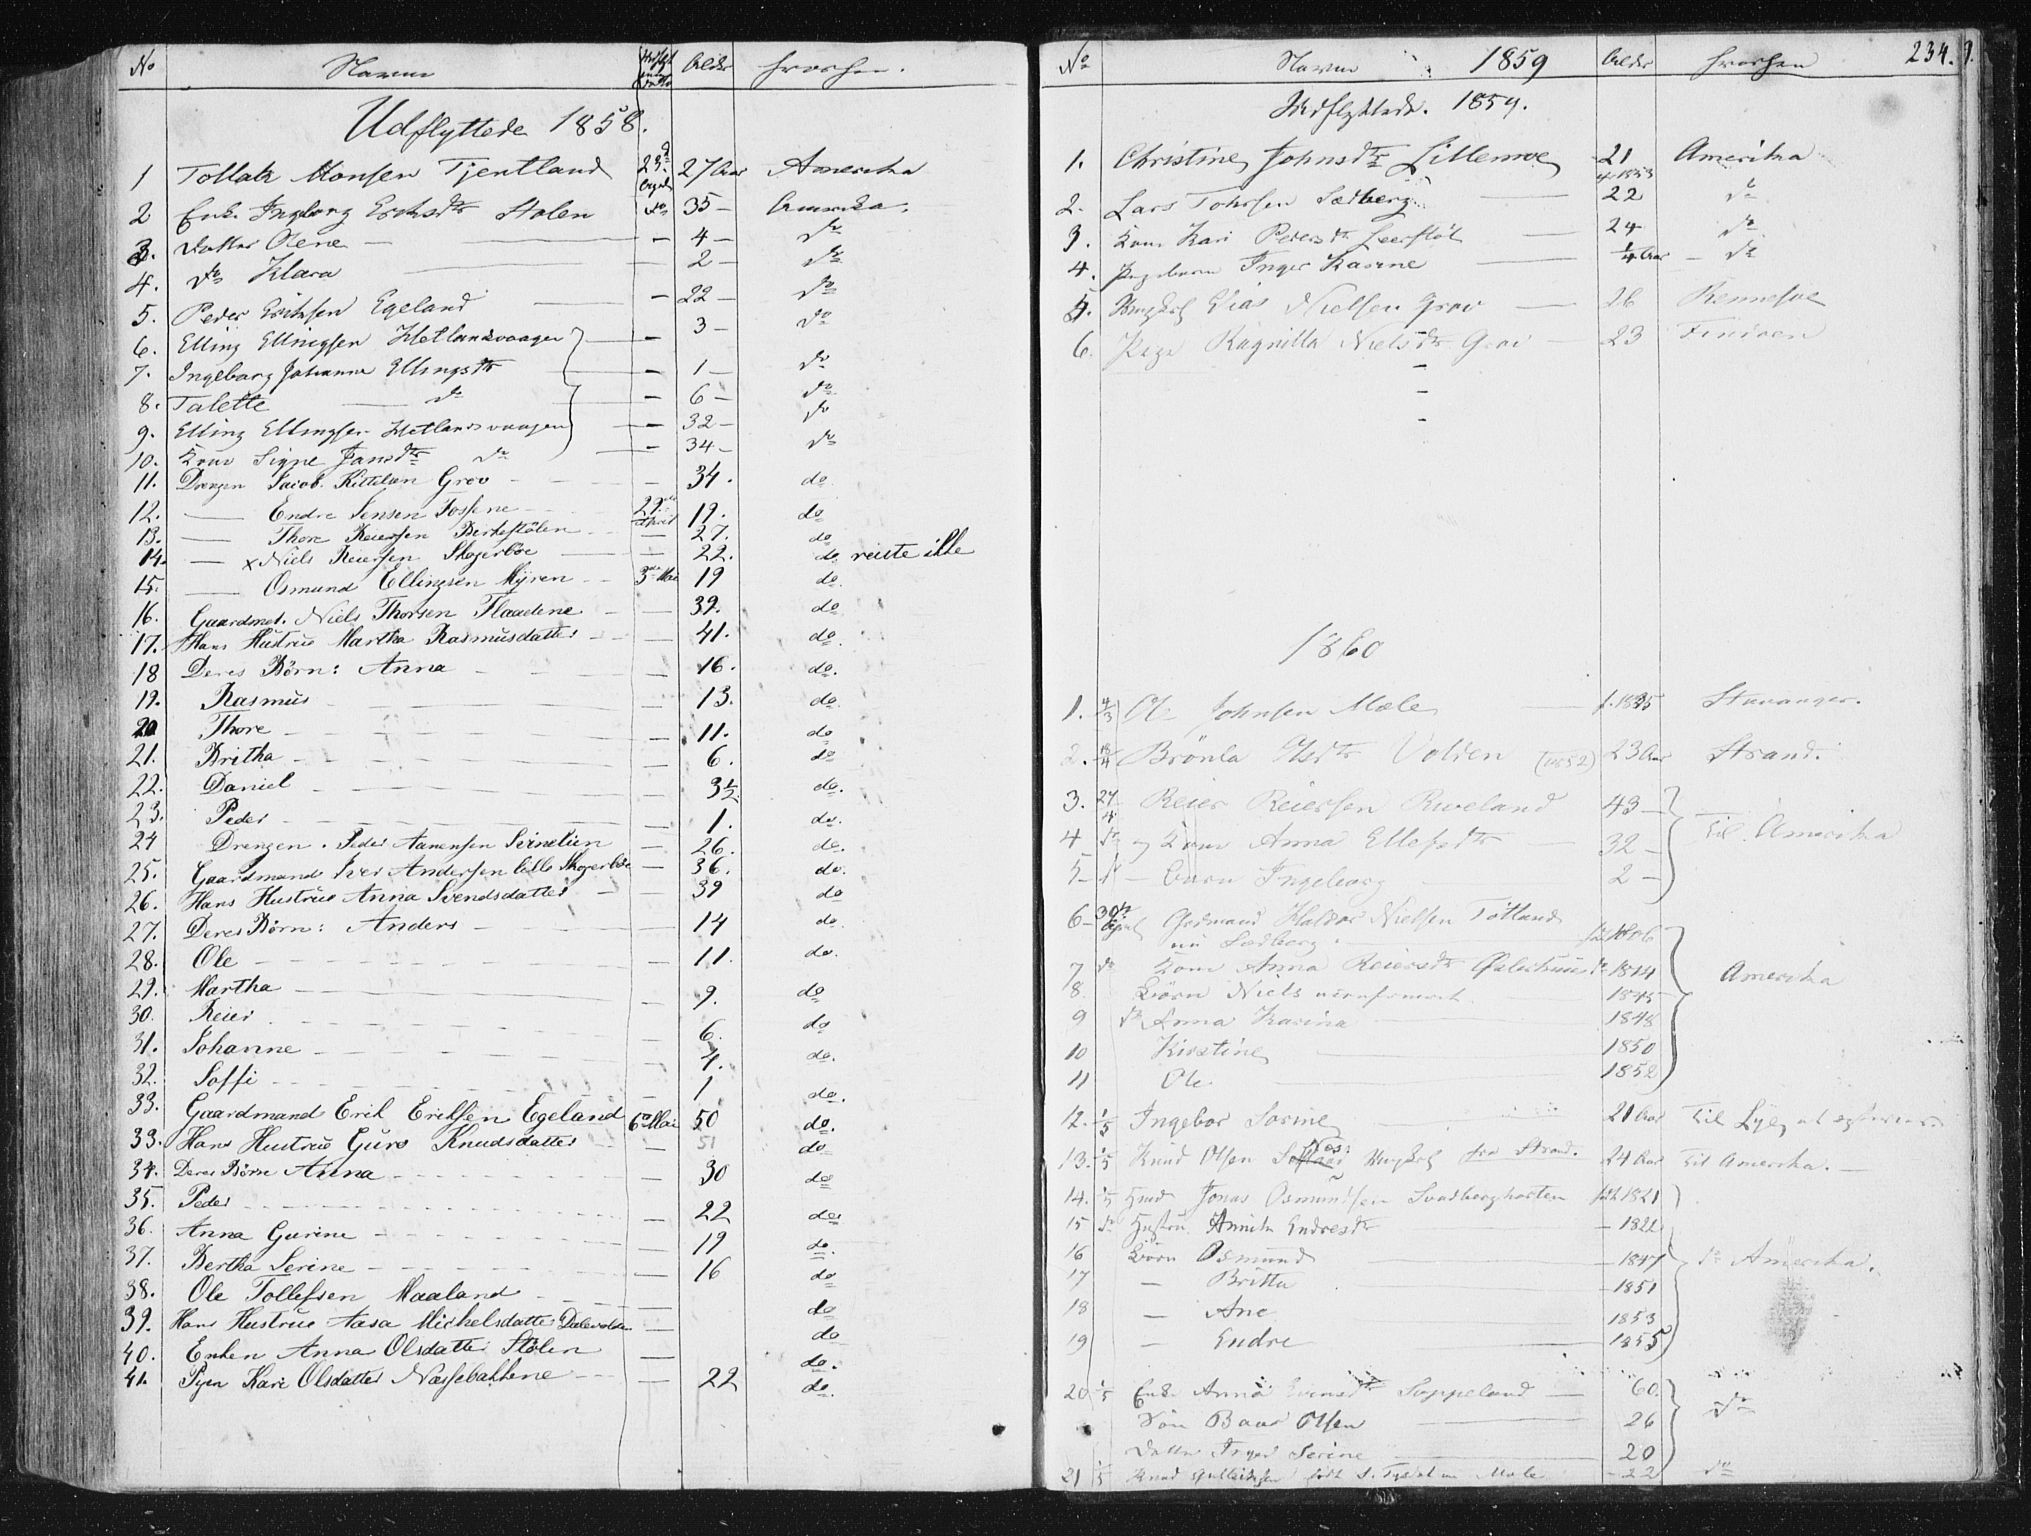 No Navne Alder hvorhen.
Udflyttede 1858.
1 Tollak Monsen Tjentland 23d April 27 Aar Amerika
2 Enk. Ingborg Eriksdtr Stølen do 35 – Amerika.
3. Datter Olene — – 4 – do
4. do Klara — 2 – do
5. Peder Eriksen Egeland — – 22 – do
6. Elling Ellingsen Hetlandsvaagen – 3 – do
7. Ingeborg Johanna Ellingsdtr – 1 – do
8. Talette — do – 6 – do
9. Elling Ellingsen Hetlandsvaagen – 32 – do
10. Kone Signe Jansdtr do – 34 – do
11. Drengen Jacob Kittelsen Grov 34. do
12. — Endre Jensen Fossene 29de April 19. do
13. — Thore Reiersen Birkestølen — 27. do
14. — x Niels Reiersen Skogerbøe — 22. do reiste ikke
15. — Osmund Ellingsen Myren 3die Mai 19 do
16. Gaardmd. Niels Thorsen Flaadene — 39. do
17. Hans Hustrue Martha Rasmusdatter — 41. do
18 Deres Børn: Anna — 16. do.
19. Rasmus — 13. do
20 Thore — 11. do
21. Britha — 6. do
22. Daniel — 3½. do.
23. Peder — 1. do.
24 Drengen. Peder Aanensen Svinelien — 26. do.
25. Gaardmand Iver Andersen lille Skogerbøe — 36. do.
26. Hans Hustrue Anna Svendsdatter — 39 do
27. Deres Børn: Anders — 14 do
28. Ole — 11. do.
29. Martha — 9. do
30. Reier 6. do
31. Johanne — 4. do.
32. Soffi — 1 do.
33. Gaardmand Erik Eriksen Egeland 6te Mai 50 do.
33. Hans Hustrue Guro Knudsdatter — 51 do
34. Deres Børn Anna — 30 do
35. Peder — 22 do
36. Anna Gurine — 19 do.
37. Bertha Serine — 16 do
38. Ole Tollefsen Maaland — do
39. Hans Hustrue Aasa Mikkelsdatter Dalevolden — do
40. Enken Anna Olsdatter Stølen — do.
41. Pigen Kari Olsdatter Næssebakkene — 22 do.
No Navne 1859 Alder hvorhen 234.
Udflyttede. 1859.
1. Christine Johnsdtr Lillemoe 21 Amerika
2. Lars Tohrsen Sedberg — 22 do
3. Kone Kari Pedersdtr Leerstøl — 24 do
4. Pigebarn Inger Karine — ¼ Aar – do
5. Ungkarl Elias Nielsen Grov — 26 Rennesøe
6. Pige Ragnilla Nielsdtr Grov – 23 Findøen
1860
1. 4/3 Ole Johnsen Mæle f. 1835 Stavanger.
2. Brönla Olsdtr Volden (1852) 23 Aar Strand.
3. 27/4 Reier Reiersen Rweland 43 – til Amerika
4 do og Kone Anna Ellefsdtr — 32 –
5 – Barn Ingeborg — 2 –
6 – 30te April Grdmand Haldor Nielsen Tøtland
nu Sedberg. — 1806
7 do Kone Anna Reiersdtr Østerhuus 1814 Amerika
8 Børn Niels 1845
9 do Anna Karina — 1848
10 Kirstine — 1850
11 Ole — 1852
12. 1/5 Ingebor Sorine — 21 Aar til Lye
13. 1/5 Knud Olsen Ungkarl fra Strand. 24 Aar til Amerika. –
14. 1/5 Jonas Osmundsen Svadbergholten født 1821
15 do Hustru Annita Endresdtr – 1822
16 Børn Osmund — – 1847 do Amerika.
17 – Britta 1851
18 – Ane 1853
19 – Endre 1855
20 1/5 Enke Anna Soppeland — 60. do
Søn Baar Olsen — 26
Datter Inger Serine — 20
21 1/5 Knud — 22 do